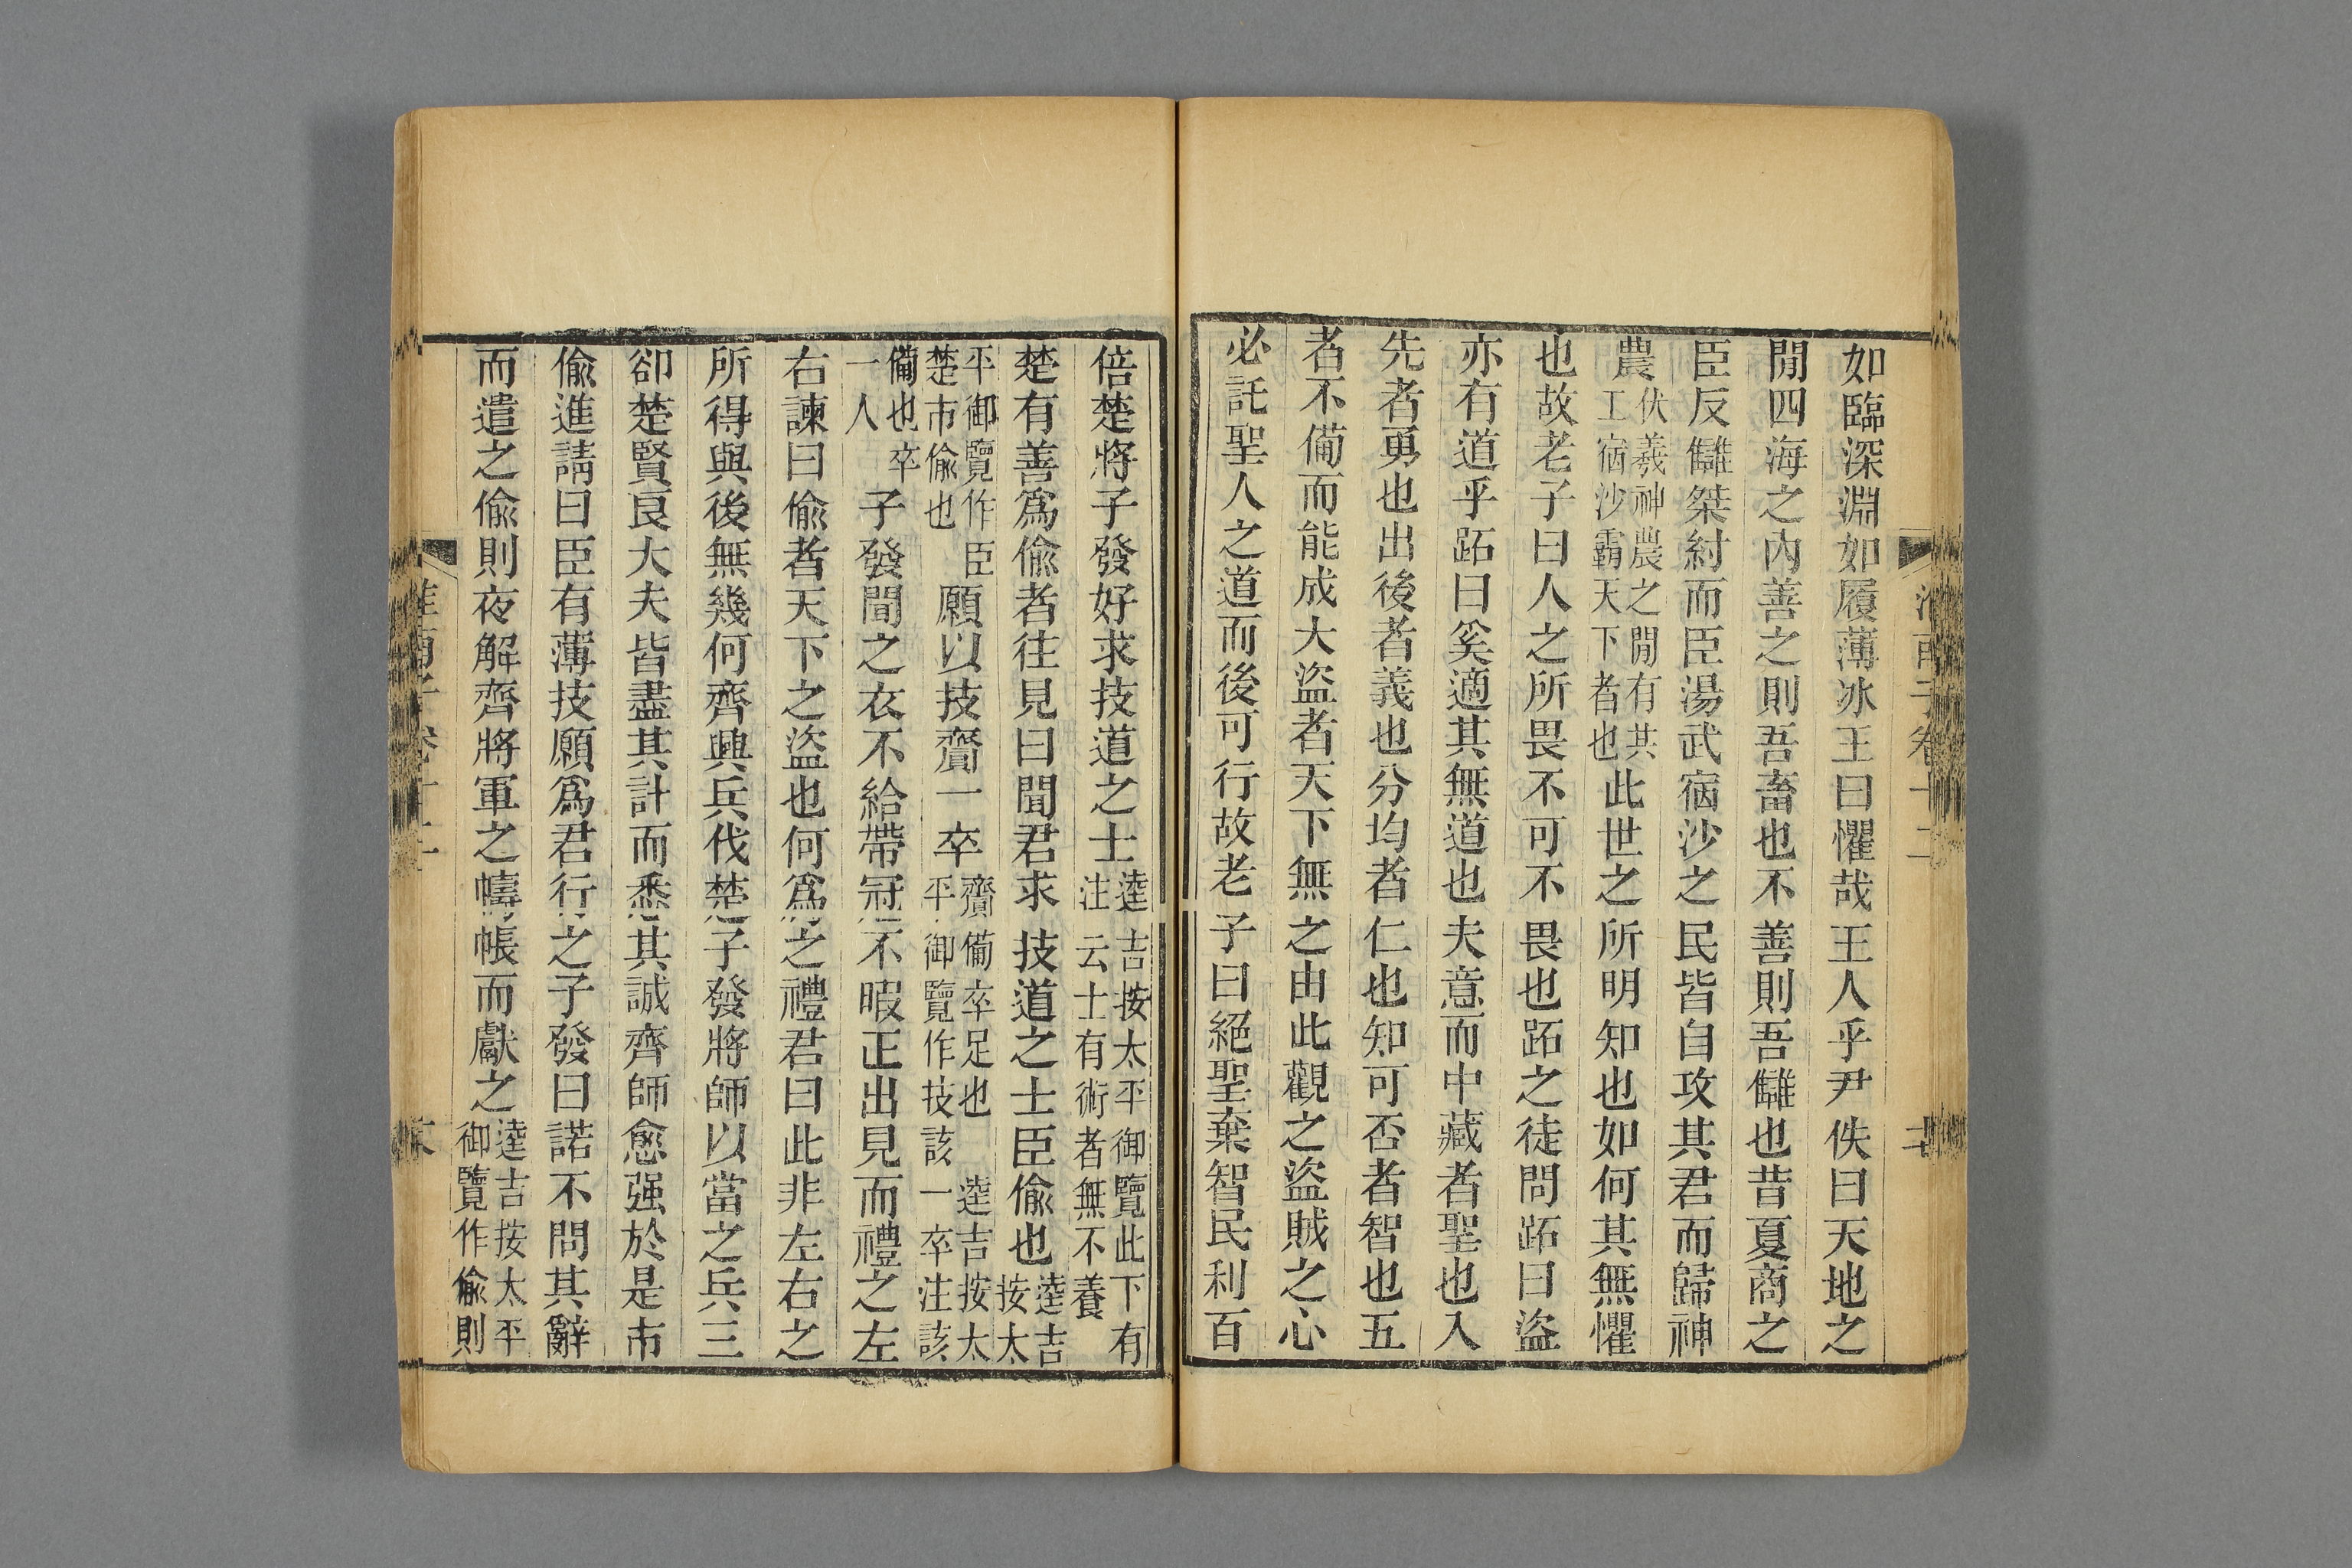 如臨深淵如履薄冰王曰懼哉王人乎尹佚曰天地之
閒四海之內善之則吾畜也不善則吾讎也昔夏商之
臣反讎桀紂而臣湯武宿沙之民皆自攻其君而歸神
農伏羲神農之閒有共工宿沙霸天下者也此世之所明知也如何其無懼
也故老子曰人之所畏不可不畏也跖之徒問跖曰盜
亦有道乎跖曰奚適其無道也夫意而中藏者聖也入
先者勇也出後者義也分均者仁也知可否者智也五
者不備而能成大盜者天下無之由此觀之盜賊之心
必託聖人之道而後可行故老子曰絕聖棄智民利百
倍楚將子發好求技道之士逵吉按太平御覽此下有注云士有術者無不養
楚有善爲偷者往見曰聞君求技道之士臣偷也逵吉按太
平御覽作臣楚市偷也願以技齎一卒齎備卒足也逵吉按太平御覽作技該一卒注該
備也卒一人子發聞之衣不給帶冠不暇正出見而禮之左
右諫曰偷者天下之盜也何爲之禮君曰此非左右之
所得與後無幾何齊興兵伐楚子發將師以當之兵三
卻楚賢良大夫皆盡其計而悉其誠齊師愈强於是市
偷進請曰臣有薄技願爲君行之子發曰諾不問其辭
而遣之偷則夜解齊將軍之幬帳而獻之逵吉按太平御覽作偷則